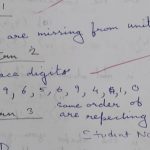 1
are missing from unit
2
ace digits
9, 6, 5, 6, 9, 4, 0, 1, 0
same order of
3
are repeating
Student No